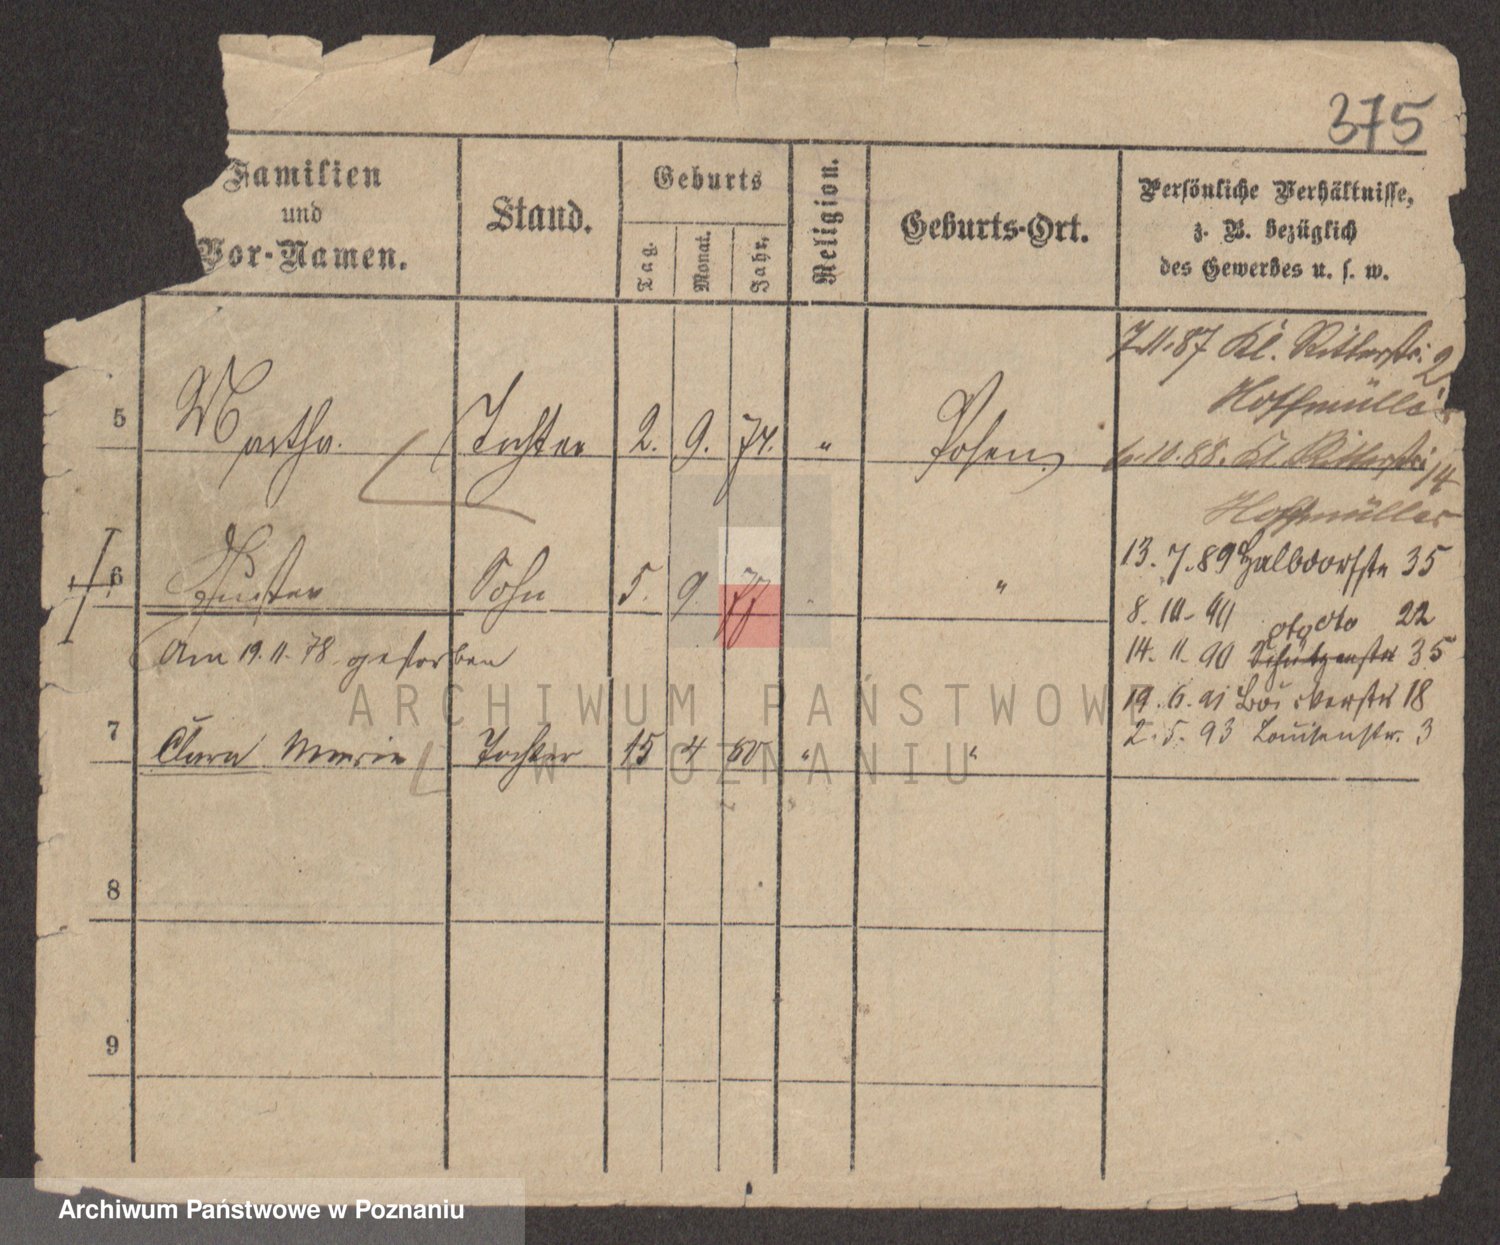 375
Familien
und
Vor-Namen.
Stand.
Geburts
Tag.
Monat.
Jahr.
Religion.
Geburts-Ort.
Persönliche Verhältnisse,
z. B. bezüglich
des Gewerbes u. s. w.
7.11.87 Kl. Ritterstr. 2
Hoffmüller
5 Martha. Tochter 2. 9. 74. " Posen.
6.10.88. Kl. Ritterstr. 14
Hoffmüller
13.7.89 Halbdorfstr 35
6 Gustav Sohn 5. 9 77 "
8.10.90 dto 22
Am 19.11.78 gestorben
14.11.90 Schützenstr 35
19.6.91 18
2.5.93 Louisenstr. 3
7 Clara Marie Tochter 15 4 80 " "
8
9
ARCHIWUM PAŃSTWOWE
W POZNANIU
Archiwum Państwowe w Poznaniu